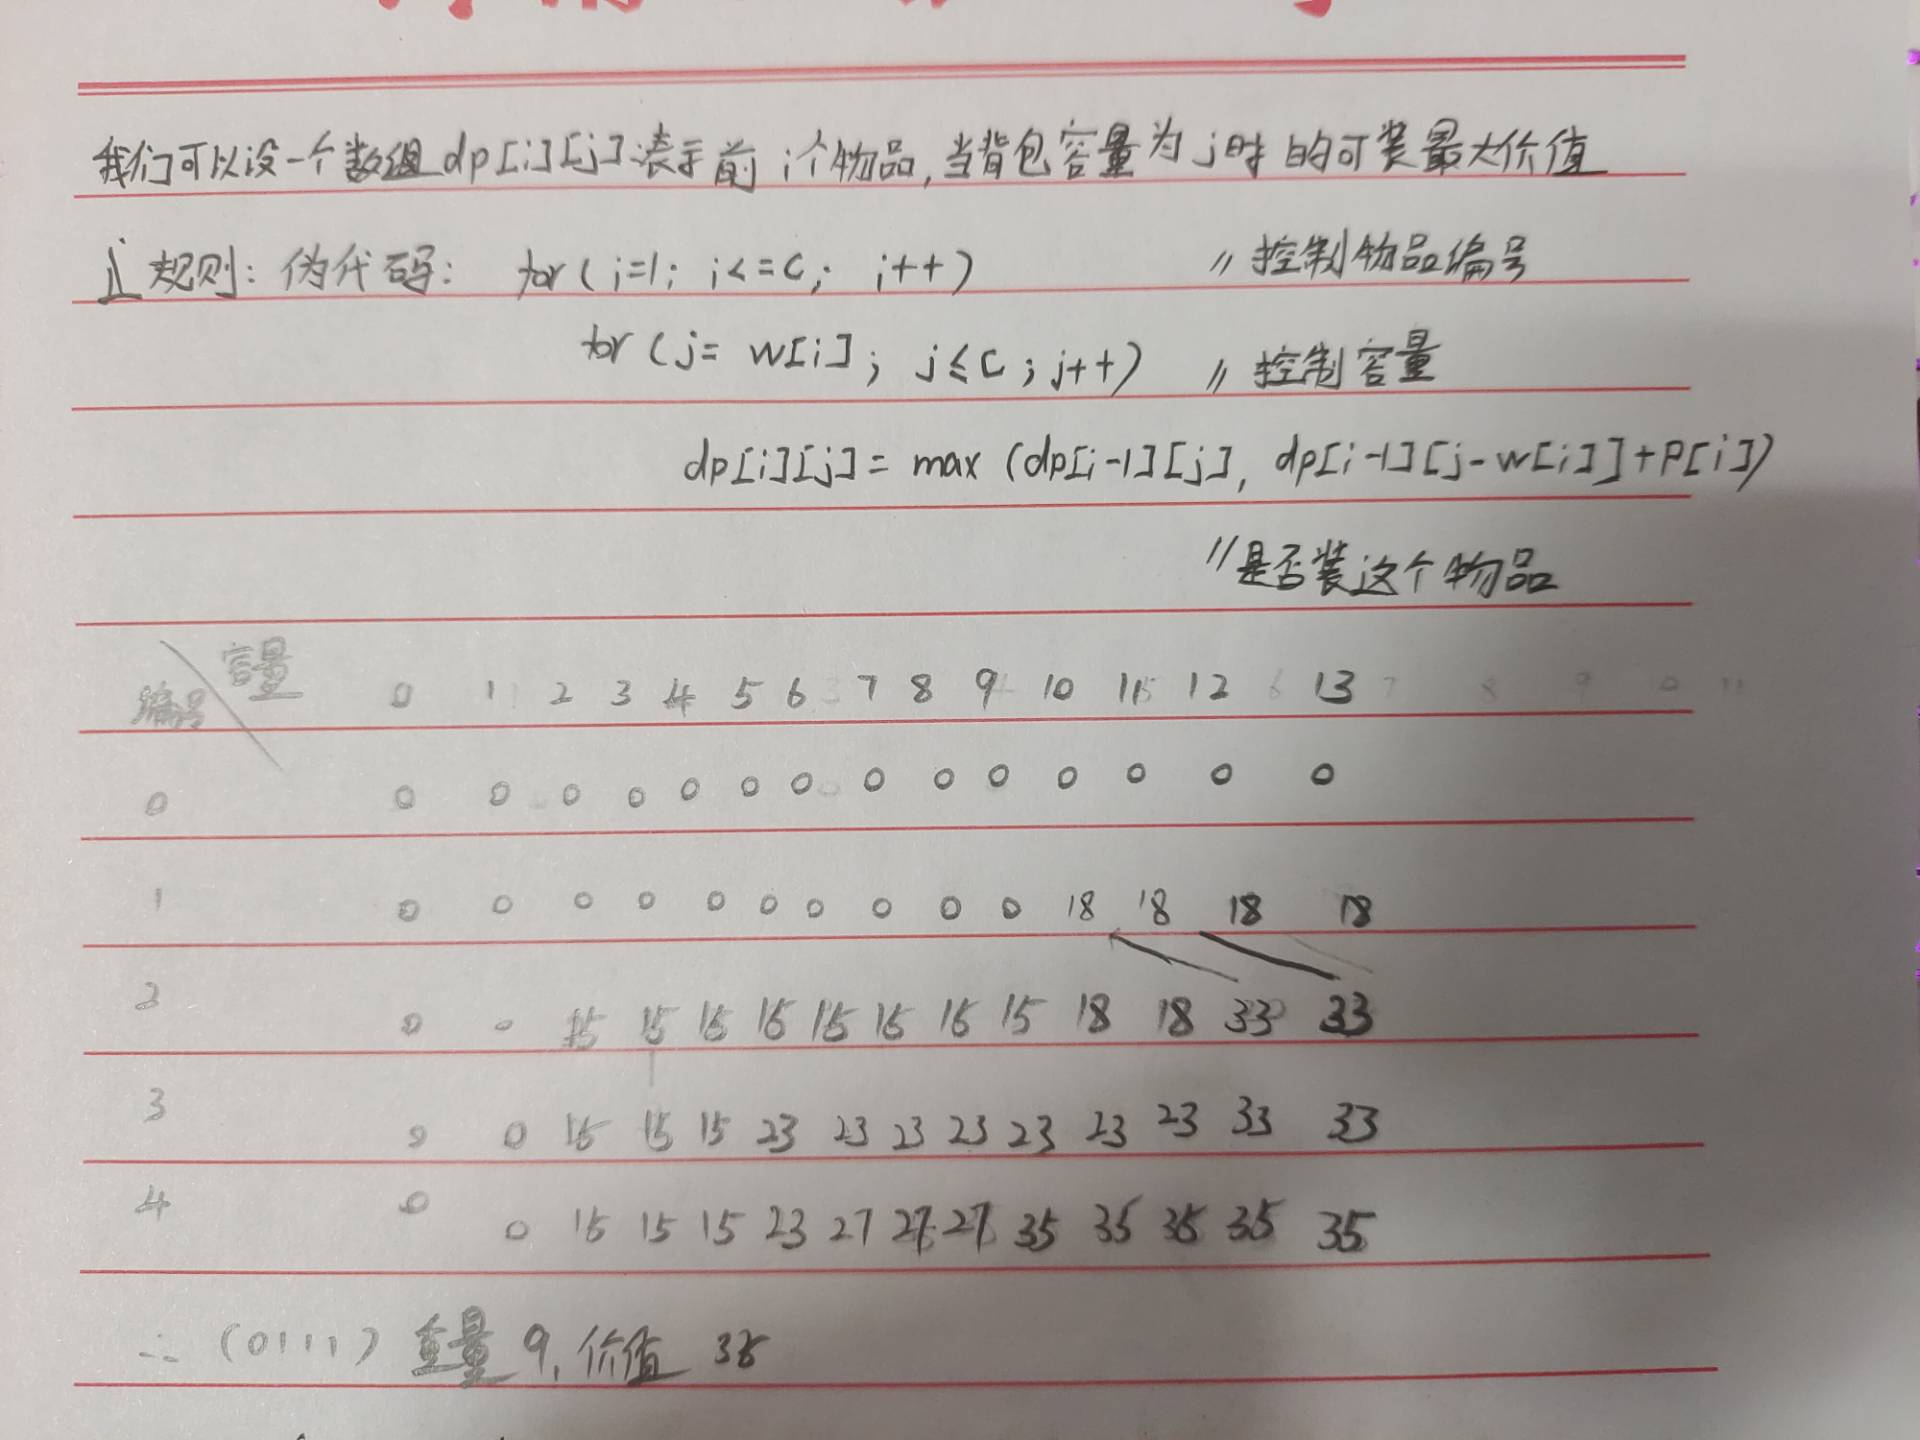 我们可以设一个数组dp[i][j]表示前i个物品,当背包容量为j时的可装最大价值
规则:伪代码: for(i=1; i<=C; i++) //控制物品编号
for(j=w[i]; j≤C; j++) //控制容量
dp[i][j]=max(dp[i-1][j], dp[i-1][j-w[i]]+P[i])
//是否装这个物品
编号 容量 0 1 2 3 4 5 6 7 8 9 10 11 12 13
0 0 0 0 0 0 0 0 0 0 0 0 0 0 0
1 0 0 0 0 0 0 0 0 0 0 18 18 18 18
2 0 0 15 15 15 15 15 15 15 15 18 18 33 33
3 0 0 15 15 15 23 23 23 23 23 23 23 33 33
4 0 0 15 15 15 23 27 27 27 35 35 35 35 35
∴ (0111) 重量9,价值35